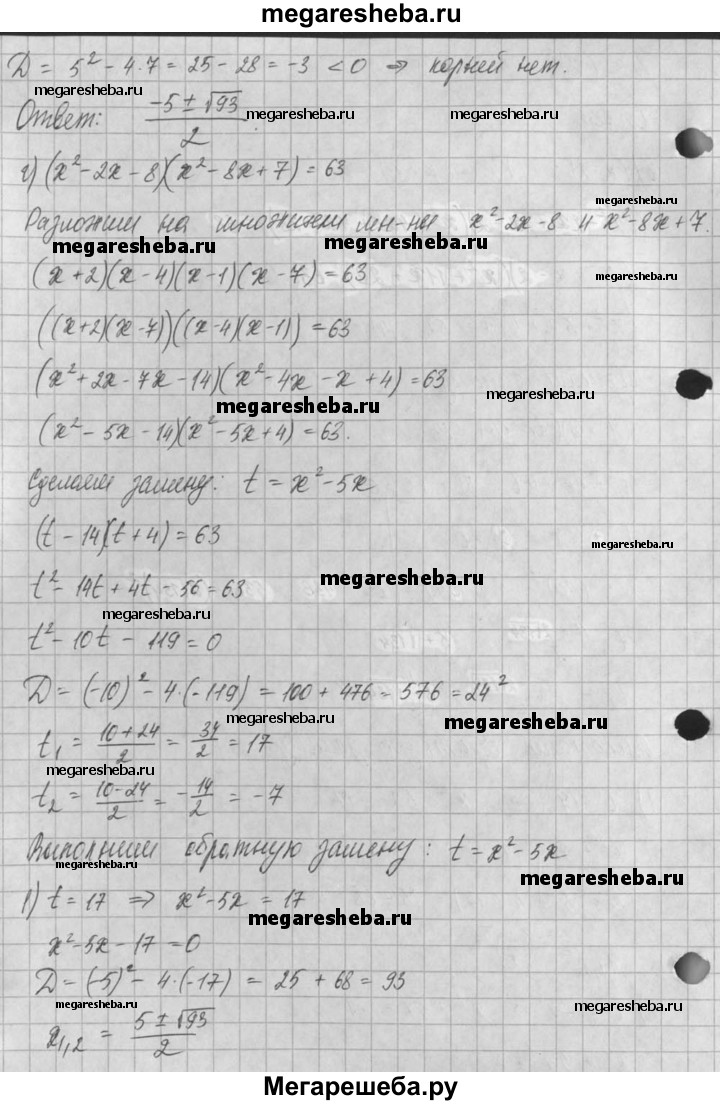 megaresheba.ru
D = 5² - 4·7 = 25 - 28 = -3 < 0 ⇒ корней нет.
megaresheba.ru
Ответ: (-5 ± √93)/2
megaresheba.ru
megaresheba.ru
г) (x² - 2x - 8)(x² - 8x + 7) = 63
megaresheba.ru
Разложим на множители мн-ны x² - 2x - 8 и x² - 8x + 7.
megaresheba.ru
megaresheba.ru
(x + 2)(x - 4)(x - 1)(x - 7) = 63
((x + 2)(x - 7))((x - 4)(x - 1)) = 63
(x² + 2x - 7x - 14)(x² - 4x - x + 4) = 63
megaresheba.ru
megaresheba.ru
(x² - 5x - 14)(x² - 5x + 4) = 63.
Сделаем замену: t = x² - 5x
(t - 14)(t + 4) = 63
megaresheba.ru
t² - 14t + 4t - 56 = 63
megaresheba.ru
megaresheba.ru
t² - 10t - 119 = 0
D = (-10)² - 4·(-119) = 100 + 476 = 576 = 24²
megaresheba.ru
megaresheba.ru
t₁ = (10 + 24)/2 = 34/2 = 17
megaresheba.ru
t₂ = (10 - 24)/2 = -14/2 = -7
Выполним обратную замену: t = x² - 5x
megaresheba.ru
megaresheba.ru
1) t = 17 ⇒ x² - 5x = 17
megaresheba.ru
x² - 5x - 17 = 0
D = (-5)² - 4·(-17) = 25 + 68 = 93
megaresheba.ru
megaresheba.ru
x₁,₂ = (5 ± √93)/2
megaresheba.ru
Мегарешеба.ру